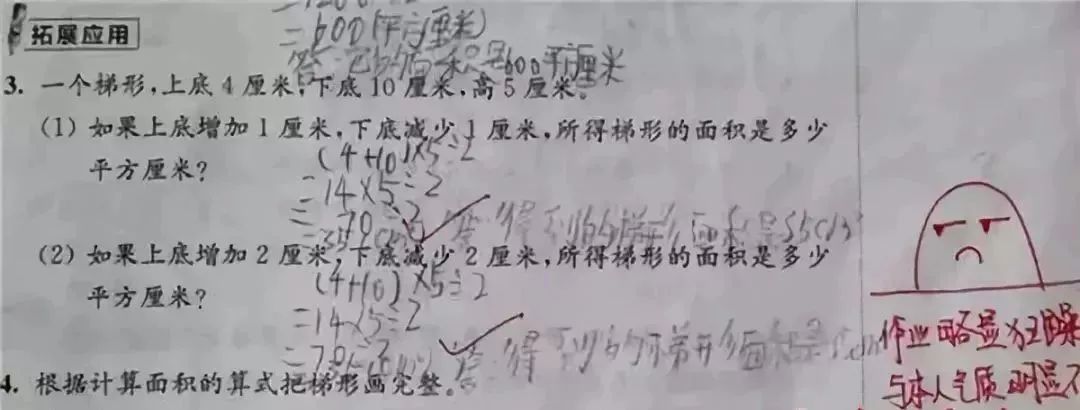 =600(平方厘米)
拓展应用
答:它的面积是600平方厘米
3. 一个梯形,上底4厘米,下底10厘米,高5厘米。
(1) 如果上底增加1厘米,下底减少1厘米,所得梯形的面积是多少
平方厘米?
(4+10)×5÷2
=14×5÷2
=70÷2
答:得到的梯形面积是35cm²
(2) 如果上底增加2厘米,下底减少2厘米,所得梯形的面积是多少
平方厘米?
(4+10)×5÷2
=14×5÷2
=70÷2
答:得到的梯形面积是
4. 根据计算面积的算式把梯形画完整。
作业略显狂躁
与本人气质明显不